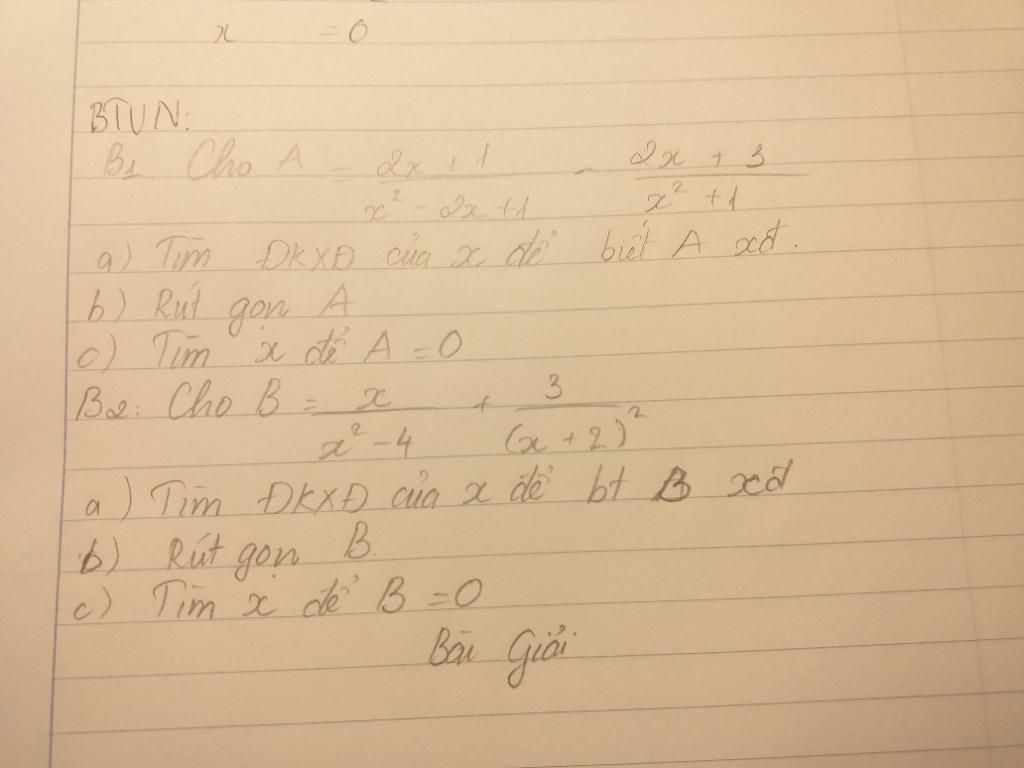 x = 0
BTVN:
B1. Cho A = \frac{2x + 1}{x² - 2x + 1} - \frac{2x + 3}{x² + 1}
a) Tìm ĐKXĐ của x để biết A xđ.
b) Rút gọn A
c) Tìm x để A = 0
B2: Cho B = \frac{x}{x² - 4} + \frac{3}{(x + 2)²}
a) Tìm ĐKXĐ của x để bt B xđ
b) Rút gọn B.
c) Tìm x để B = 0
Bài Giải